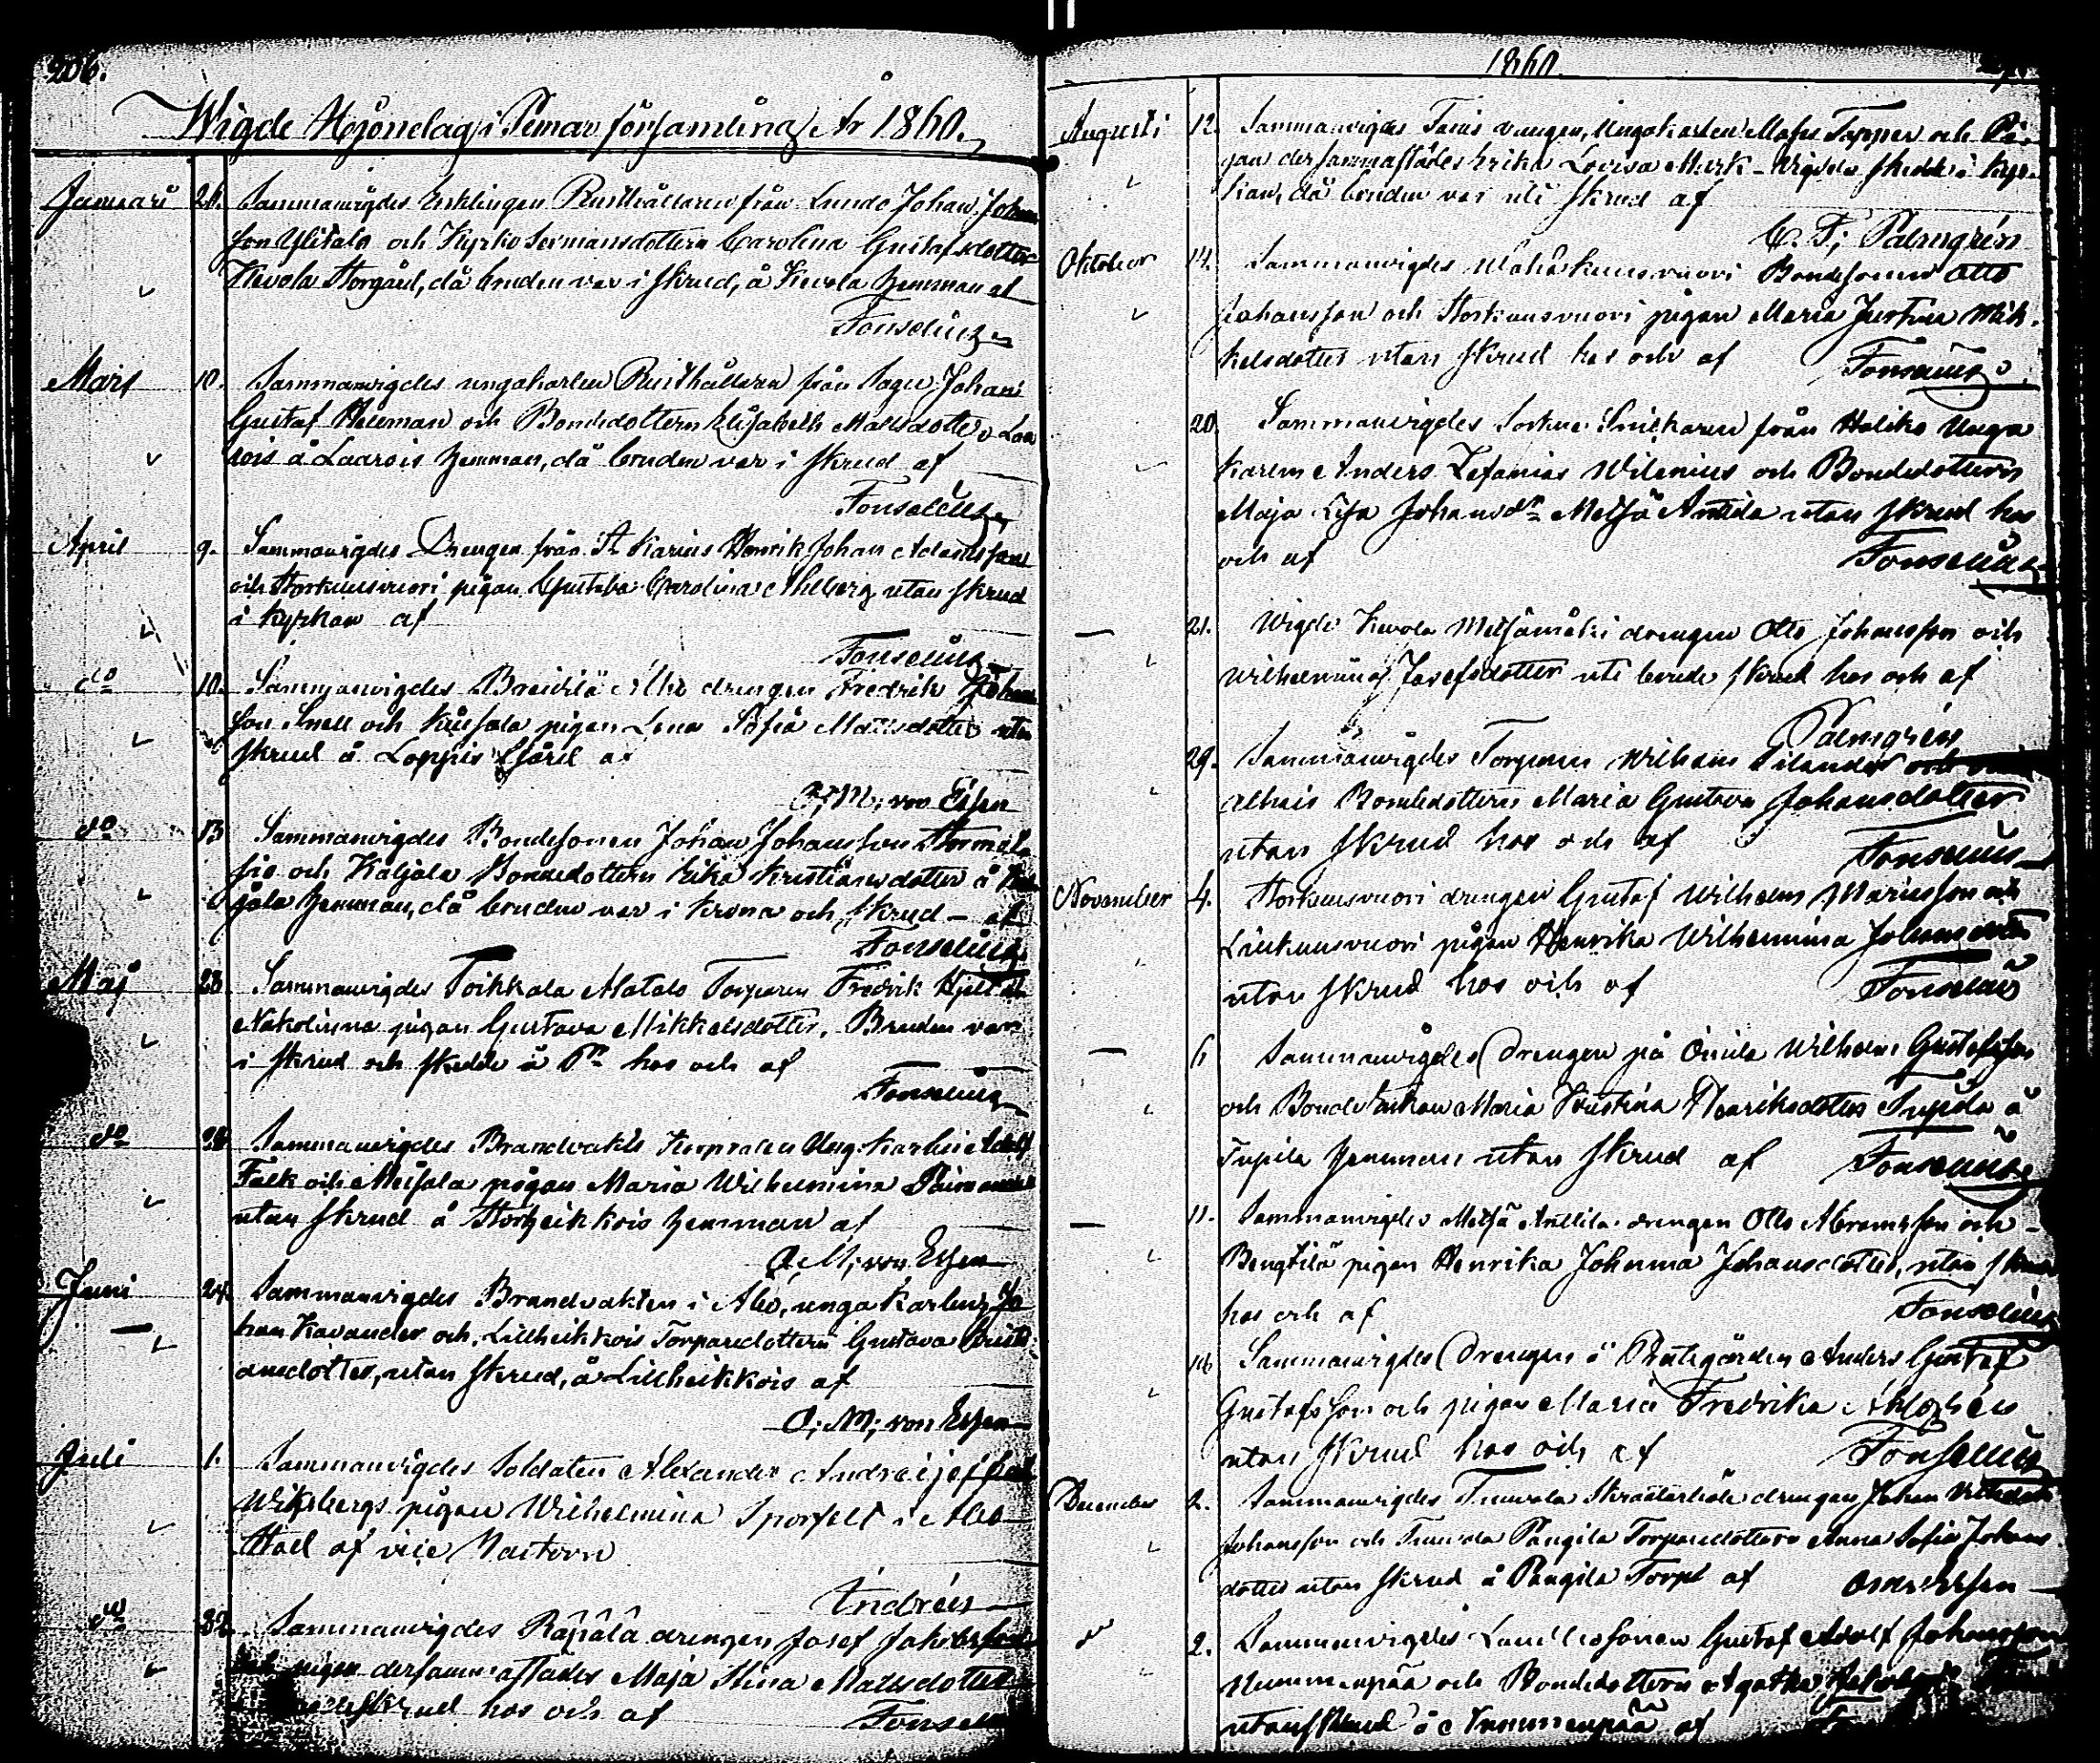 206.
Wigde Hjonelag i Pemar församling År 1860.
Januari 26. Sammanvigdes Enklingen Rusthållaren från Lundo Johan Johans
son Ylitalo och Kyrko Sexmansdottern Carolina Gustafsdotter
Kevola Storgård, då bruden var i skrud, å Kevola hemman af
Fonselius
Mars 10. Sammanvigdes ungakarlen Rusthållaren från Sagu Johan
Gustaf Heleman och Bondedottern Elisabeth Matlsdotter Laa
rois å Laarois hemman, då bruden var i skrud af
Fonselius
April 9. Sammanvigdes Drengen från St Karins Henrik Johan Adamsson
och Storkuusvuori pigan Gustava Carolina Ahlberg utan skrud
i Kyrkan af
Fonselius
do 10. Sammanvigdes drengen Fredrik Johans
son Snell och pigan Lena Sofia Mattsdotter utan
skrud å Loppis gård af
O. M. von Essen
do 13 Sammanvigdes Bondesonen Johan Johansson
och Kaljala Bondedottern Erika Kristiansdotter å Kal
jala hemman, då bruden var i krona och skrud – af
Fonselius
Maj 28. Sammanvigdes Toikkala Matals Torparen Fredrik
Nakolinna pigan Gustava Mikkelsdotter. Bruden var
i skrud och skedde å hos och af
Fonselius
do 28 Sammanvigdes Brandvakts Korpralen Ungkarlen Adolf
Falk och pigan Maria Wilhelmina
utan skrud å Storheikkois hemman af
O. M. von Essen
Juni 24. Sammanvigdes Brandvakten i Åbo, ungakarlen Jo
han Kavander och Lillheikkois Torparedottern Gustava Christi
ansdotter, utan skrud, å Lillheikkois af
O. M. von Essen
Juli 1. Sammanvigdes Soldaten Alexander Andreijeff och
Wiksbergs pigan Wilhelmina Sporfelt i Åbo
Stad af vice Pastorn
Andrén
do Sammanvigdes Räpälä drengen Josef Jakobsson
och pigan dersammastädes Maja Stina Mattsdotter
skrud hos och af
Fonselius
1860.
Augusti 12. Sammanvigdes drengen, Ungakarlen Mats Tapper och Pi
gan dersammastädes Erika Lovisa Mark – Wigseln skedde i kyr
kan, då bruden var uti skrud af
C. F. Palmgrén
Oktober 14. Sammanvigdes Wähäkuusvuori Bondesonen Otto
Johansson och Storkuusvuori pigan Maria Justina Mik
kelsdotter utan skrud hos och af Fonselius
20. Sammanvigdes Sockne från Haliko Unga
karlen Anders Zefanias Wilenius och Bondedottern
Maja Lisa Johansdr Metsä Anttila utan skrud hos
och af Fonselius
21. Wigde Kevola Metsämäki drengen Otto Johansson och
Wilhelmina Josefsdotter uti brude skrud hos och af
Palmgrén
29. Sammanvigdes Torparen Wilhelm
Bondedottern Maria Gustava Johansdotter
utan skrud hos och af Fonselius
November 4. Storkuusvuori drengen Gustaf Wilhelm och
Liukuusvuori pigan Henrika Wilhelmina Johansdotter
utan skrud hos och af Fonselius
6 Sammanvigdes Drengen på Wilhelm Gustafsson
och Bonde Enkan Maria Kristina Henriksdotter Tupila å
Tupila hemman utan skrud af Fonselius
11. Sammanvigdes Metsä Anttila drengen Otto Abramsson och
Bengtilä pigan Henrika Johanna Johansdotter, utan skrud
hos och af Fonselius
Sammanvigdes Drengen å Prästgården Anders Gustaf
Gustafsson och pigan Maria Fredrika
utan skrud hos och af Fonselius
December 2. Sammanvigdes drengen Johan
Johansson och Pungila Torparedottern Anna Sofia Johans
dotter utan skrud å Pungila Torp af O M v Essen
do 2. Sammanvigdes Gustaf Adolf Johansson
Nummenpää och Bondedottern Agatha
utan skrud å Nummenpää af